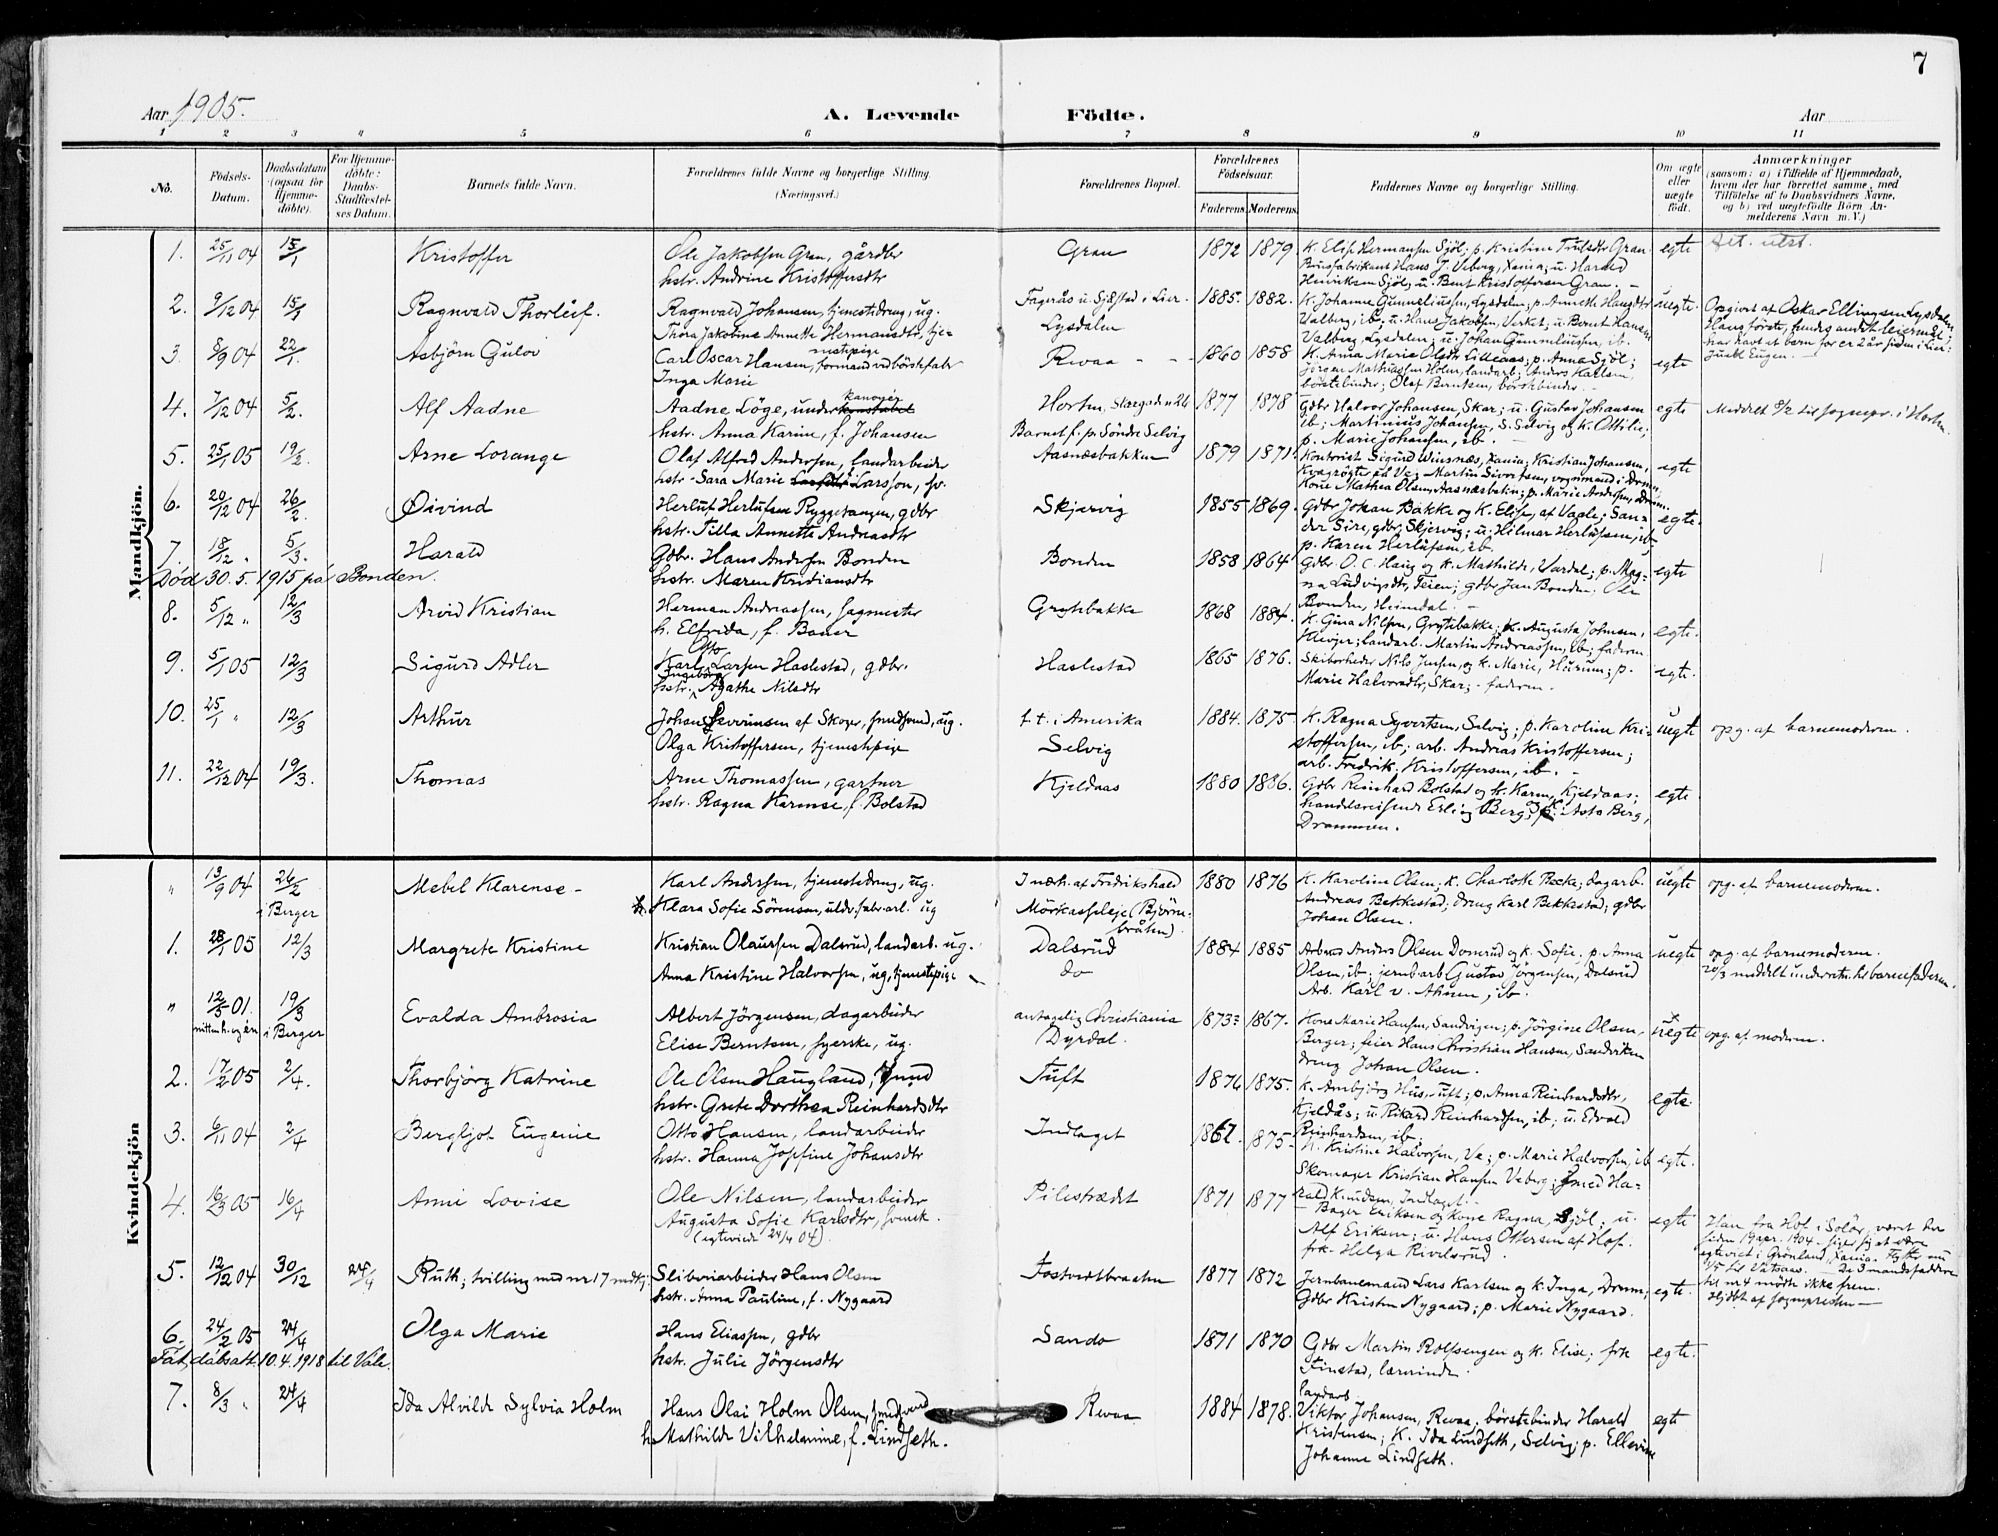 7
Aar 1905.
A. Levende Födte.
Aar
1 2 3 4 5 6 7 8 9 10 11
No.
Födsels-Datum.
Daabsdatum (ogsaa for Hjemme-döbte).
For Hjemme-döbte: Daabs-Stadfæstel-ses Datum.
Barnets fulde Navn.
Forældrenes fulde Navne og borgerlige Stilling. (Næringsvei.)
Forældrenes Bopæl.
Forældrenes Födselsaar.
Faderens. Moderens.
Faddernes Navne og borgerlige Stilling.
Om ægte eller uægte födt.
Anmærkninger
(saasom: a) i Tilfælde af Hjemmedaab, hvem der har forrettet samme, med Tilföielse af to Daabsvidners Navne, og b) ved uægtefödte Börn An-melderens Navn m. V.)
Mandkjön.
1. 25/11 04 15/1 Kristoffer
Ole Jakobsen Gran, gårdbr
hstr. Andrine Kristoffersdtr
Gran 1872 1879
K. Elise Hermansen Sjöl; p. Kristine Trulsdtr Gran
Brusfabrikant Hans J. Veberg, Xania; u. Harald
Henriksen Sjöl; u. Bent Kristoffersen Gran. -
egte
Att. utst.
2. 9/12 04 15/1 Ragnvald Thorleif.
Ragnvald Johansen, tjenestedreng, ug.
Thora Jakobine Annette Hermansdtr, tjenestepige
Fagerås u. Sjæstad i Lier.
Lysdalen
1885. 1882.
K. Johanne Gunneliussen, Lysdalen; p. Annette Haugdtr
Valberg, ib; u. Hans Jakobsen, Verket; u. Bernt Hansen
Valberg, Lysdalen; u. Johan Gunneliussen, ib.
uegte.
Opgivet af Oskar Ellingsen Lysdalen
Hans förste, hendes andet leiermål,
har havt et barn for ca 2 år siden i Lier:
Juell Eugen. -
3. 8/9 04 22/1 Asbjörn Gulov
Carl Oscar Hansen, formand ved börstefabr
Inga Marie
Revaa 1860 1858
K. Anna Marie Olsdtr Lilleaas; p. Anna Sjöl;
Jörgen Mathiassen Holm, landarb; Anders Karlsen,
börstebinder; Olaf Berntsen, börstebinder. -
egte
4. 7/12 04 5/2. Alf Aadne
Aadne Löge, underkanonér
hstr. Anna Karine, f. Johansen
Horten, Skærgadn 26
Barnet f. på Söndre Selvig
1877 1878
Gdbr Halvor Johansen, Skar; u. Gustav Johansen
ib; Martinius Johansen, S. Selvig og k. Ottilie;
p. Marie Johansen, ib. -
egte
Meddelt 8/2 til sognepr. i Horten.
5. 25/1 05 19/2. Arne Lorange
Olaf Alfred Andersen, landarbeider
hstr. Sara Marie Larsson, sv.
Aasnæsbakken 1879 1871
Kontorist Sigurd Winsnæs, Xania; Kristian Johansen,
Kvægrögter på Ve; Martin Sivertsen, vognmand i Dramn,
Kone Mathea Olsen, Aasnæsbakn; p. Marie Andersen, Dramn.
egte
6. 20/12 04 26/2. Øivind
Herluf Herlufsen Ryggetangen, gdbr
hstr. Tilla Annette Andreasdtr
Skjervig 1855 1869.
Gdbr Johan Bakke og K. Elise, af Vaale; San-
der Sire, gdbr, Skjervig; u. Hilmar Herlufsen, ib;
p. Karen Herlufsen, ib.
egte.
7. 18/12 " 5/3. Harald
Død 30.5.1915 på Bonden.
Gdbr. Hans Andersen Bonden
hstr. Maren Kristiansdtr
Bonden 1858 1864
Gdbr. O. C. Haug og k. Mathilde, Vardal; p. Mag-
na Ludvigsdtr, Teien; gdbr Jan Bonden; Ole
Bonden, Heimdal. -
egte
8. 5/12 " 12/3 Arvid Kristian
Herman Andreassen, sagmester
h. Elfrida, f. Bauer
Grytebakke 1868 1884.
K. Gina Nilsen, Grytebakke; K. Augusta Johnsen,
Klevjer; landarb. Martin Andreassen, ib; faderen
egte.
9. 5/1 05 12/3 Sigurd Adler
Karl Otto Larsen Haslestad, gdbr.
hstr. Ingeborg Agathe Nilsdtr
Haslestad 1865 1876.
Skiberheder Nils Jensen, og k. Marie, Hörum; p.
Marie Halvorsdtr, Skar; - faderen -
egte.
10. 25/1 " 12/3 Arthur
Johan Severinsen af Skoger, smedsvend, ug.
Olga Kristoffersen, tjenestepige
f. t. i Amerika
Selvig
1884. 1875.
K. Ragna Syvertsen, Selvig; p. Karoline Kri-
stoffersen, ib; arb. Andreas Kristoffersen;
arb. Fredrik Kristoffersen, ib. -
uegte
opg. af barnemoderen.
11. 22/12 04 19/3. Thomas
Arne Thomassen, gartner
hstr. Ragna Karense, f. Bolstad
Kjeldaas 1880 1886.
Gdbr Reinhard Bolstad og k. Karen, Kjeldaas;
handelsreisende Erling Berg og k. Asta Berg,
Drammen.
egte.
Kvindekjön
" 13/9 04 26/2 i Berger Mebel Klarense -
Karl Andersen, tjenestedreng, ug.
Klara Sofie Sörensen, uldv.fabr.arb. ug
I nærh. af Fredrikshald
Mörkasseleje (Björne-bråten)
1880 1876
K. Karoline Olsen; K. Charlotte Becke; dagarb.
Andreas Bekkestad; dreng Karl Bekkestad; gdbr
Johan Olsen.
uegte
opg. af barnemoderen.
1. 28/1 05 12/3 Margrete Kristine
Kristian Olaussen Dalsrud, landarb. ug.
Anna Kristine Halvorsen, ug, tjenestepige
Dalsrud
do
1884 1885
Arbm Anders Olsen Domrud og k. Sofie, p. Anna
Olsen, ib; jernb.arb Gustav Jörgensen, Dalsrud
Arb. Karl v. Ahnen, ib.
uegte
opg. af barnemoderen.
20/3 meddelt underretn. til barnefaderen.
" 12/5 01. 19/3 i Berger Evalda Ambrosia
Albert Jörgensen, dagarbeider
Elise Berntsen, syerske, ug.
antagelig Christiania
Dyrdal.
1873? 1867.
Kone Marie Hansen, Sandvigen; p. Jörgine Olsen,
Berger; feier Hans Christian Hansen, Sandviken
dreng Johan Olsen.
uegte
opg. af moderen.
2. 17/2 05 2/4. Thorbjörg Katrine
Ole Olsen Haugland, smed
hstr. Grete Dorthea Reinhardsdtr
Tuft 1876 1875.
K. Ambjörg Hus, Tuft; p. Anna Reinhardsdtr,
Kjeldås; u. Rikard Reinhardsen, ib; u. Edvald
Reinhardsen, ib.
egte.
3. 6/11 04 2/4 Bergljot Eugenie
Otto Hansen, landarbeider
hstr. Hanna Josefine Johansdtr
Indlaget 1862. 1875
K. Kristine Halvorsen, Ve; p. Marie Halvorsen, ib
Skomager Kristian Hansen Veberg; smed Ha-
rald Knudsen, Indlaget. -
egte.
4. 16/3 05 16/4 Anni Lovise
Ole Nilsen, landarbeider
Augusta Sofie Karlsdtr, svensk.
(egteviede 24/4 04).
Pilestrædet 1871 1877
Bager Eriksen og kone Ragna, Sjöl; u.
Alf Eriksen; u. Hans Ottersen af Hof.
frk. Helga Rivelsrud.
egte
Han fra Hol i Solör, været her
siden 19 apr. 1904. Siger sig at være
egteviet i Grønland, Xania. Flytter nu
1/5 til . De 3 mandsfaddere
til nr 4 mödte ikke frem.
5. 12/12 04 30/12 24/4 Ruth; tvilling med nr 17 mdkj.
Sliberiarbeider Hans Olsen
hstr. Anna Pauline, f. Nygaard
Tostvedtbraaten 1877 1872
Jernbanemand Lars Karlsen og k. Inga, Dramn;
Gdbr Kristen Nygaard; p. Marie Nygaard.
egte.
Hjdöbt af sognepresten -
6. 24/2 05 24/4 Olga Marie
Fåt dåbsatt. 10.4.1918 til Vale.
Hans Eliassen, gdbr
hstr. Julie Jörgensdtr
Sando 1871 1870
Gdbr Martin Rolfsengen og k. Elise; frk
Finstad, lærerinde.
egte.
7. 8/3 " 24/4 Ida Alvilde Sylvia Holm
Hans Olai Holm Olsen, smedsvend
h. Mathilde Vilhelmine, f. Lindseth.
Revaa 1884 1878.
landarb. Viktor Johansen, Revaa; börstebinder Harald
Kristensen; K. Ida Lindseth, Selvig; p. Ellevine
Johanne Lindseth.
egte